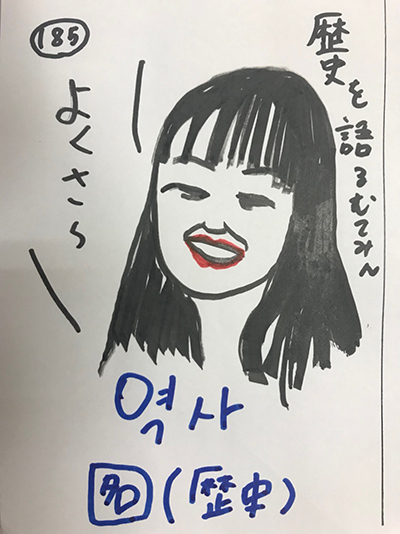 185
歴史を語るむてみん
よくさら
역사
名(歴史)